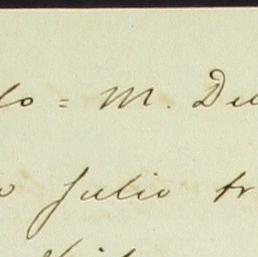 lo = M. De
o Julio tr